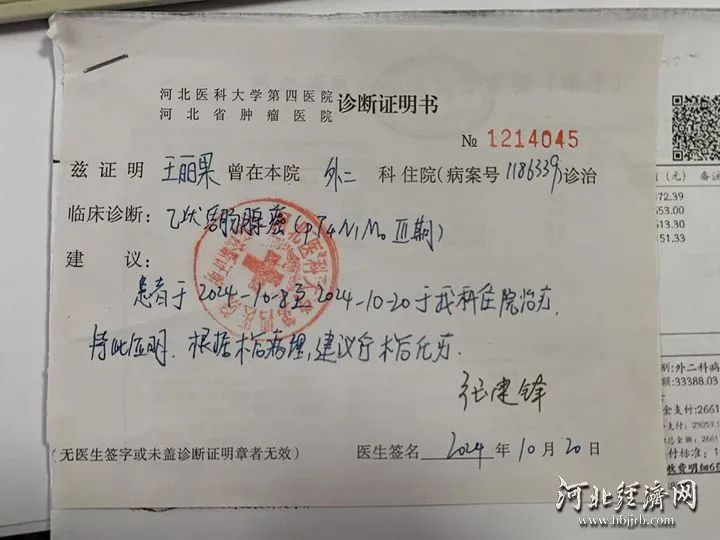 河北医科大学第四医院
河北省肿瘤医院
诊断证明书
№ 1214045
兹证明 王丽果 曾在本院 外二 科住院(病案号1186339)诊治
临床诊断：乙状结肠腺癌(pT4N1M0 III期)
建议：
患者于2024-10-8至2024-10-20于我科住院治疗,
特此证明. 根据术后病理,建议行术后化疗.
张建锋
(无医生签字或未盖诊断证明章者无效)
医生签名 2024 年 10 月 20 日
(元)
472.39
553.00
513.30
151.33
别:外二科病
额:33388.03
金支付:2661
支付:29059.1
付标准:1
收费明细6
河北经濟网
www.hbjjrb.com